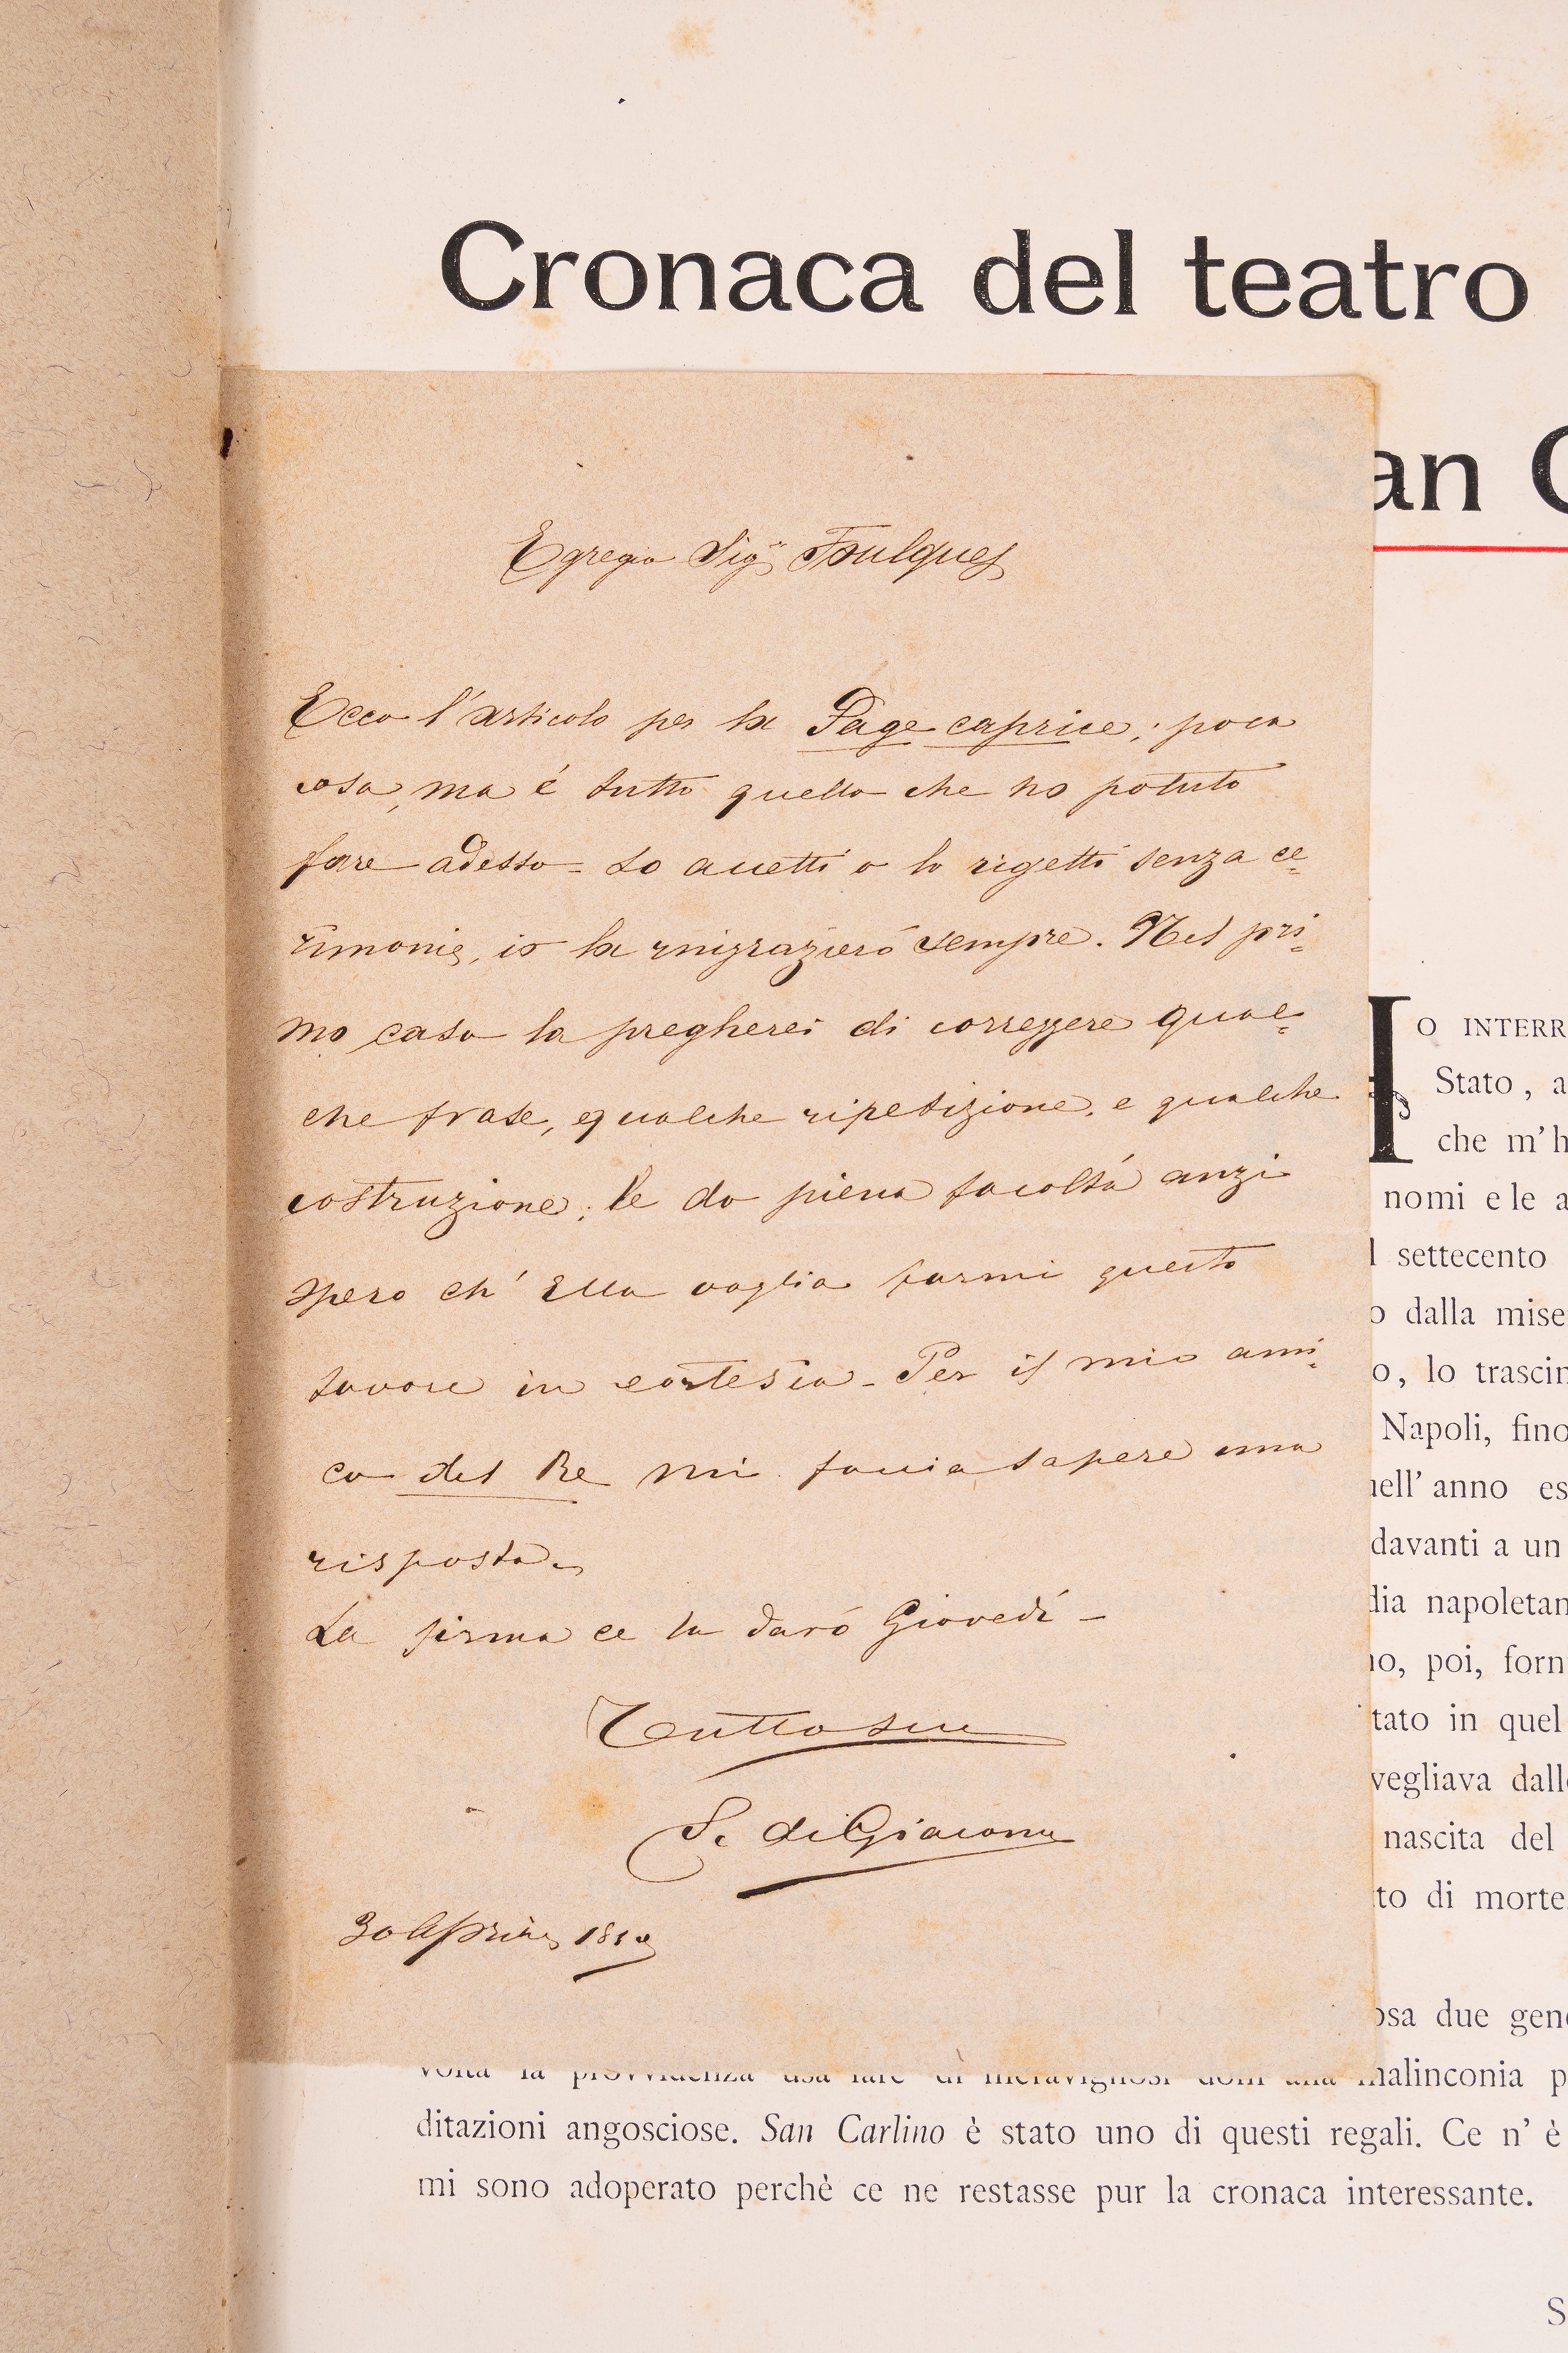 Cronaca del teatro
an C
Egregio Sigr Foulques
Ecco l'articolo per la Page caprice; poca
cosa, ma é tutto quello che ho potuto
fare adesso - Lo accetti o lo rigetti senza ce=
rimonie, io la ringrazieró sempre. Nel pri=
mo caso la pregherei di correggere qual=
che frase, e qualche ripetizione, e qualche
costruzione; le do piena facoltá anzi
spero ch' Ella voglia farmi questo
favore in cortesia - Per il mio ami=
co del Re mi faccia sapere una
risposta.
La firma ce la daró Giovedí -
Tutto suo
S. di Giacomo
30 Aprile
IO INTERR
Stato, a
che m'h
nomi e le a
l settecento
o dalla mise
o, lo trascin
Napoli, fino
nell' anno es
davanti a un
dia napoletan
no, poi, forn
tato in quel
vegliava dall
nascita del
to di morte
osa due gen
volta la provvidenza usa fare di meravigliosi doni alla malinconia p
ditazioni angosciose. San Carlino è stato uno di questi regali. Ce n' è
mi sono adoperato perchè ce ne restasse pur la cronaca interessante.
S